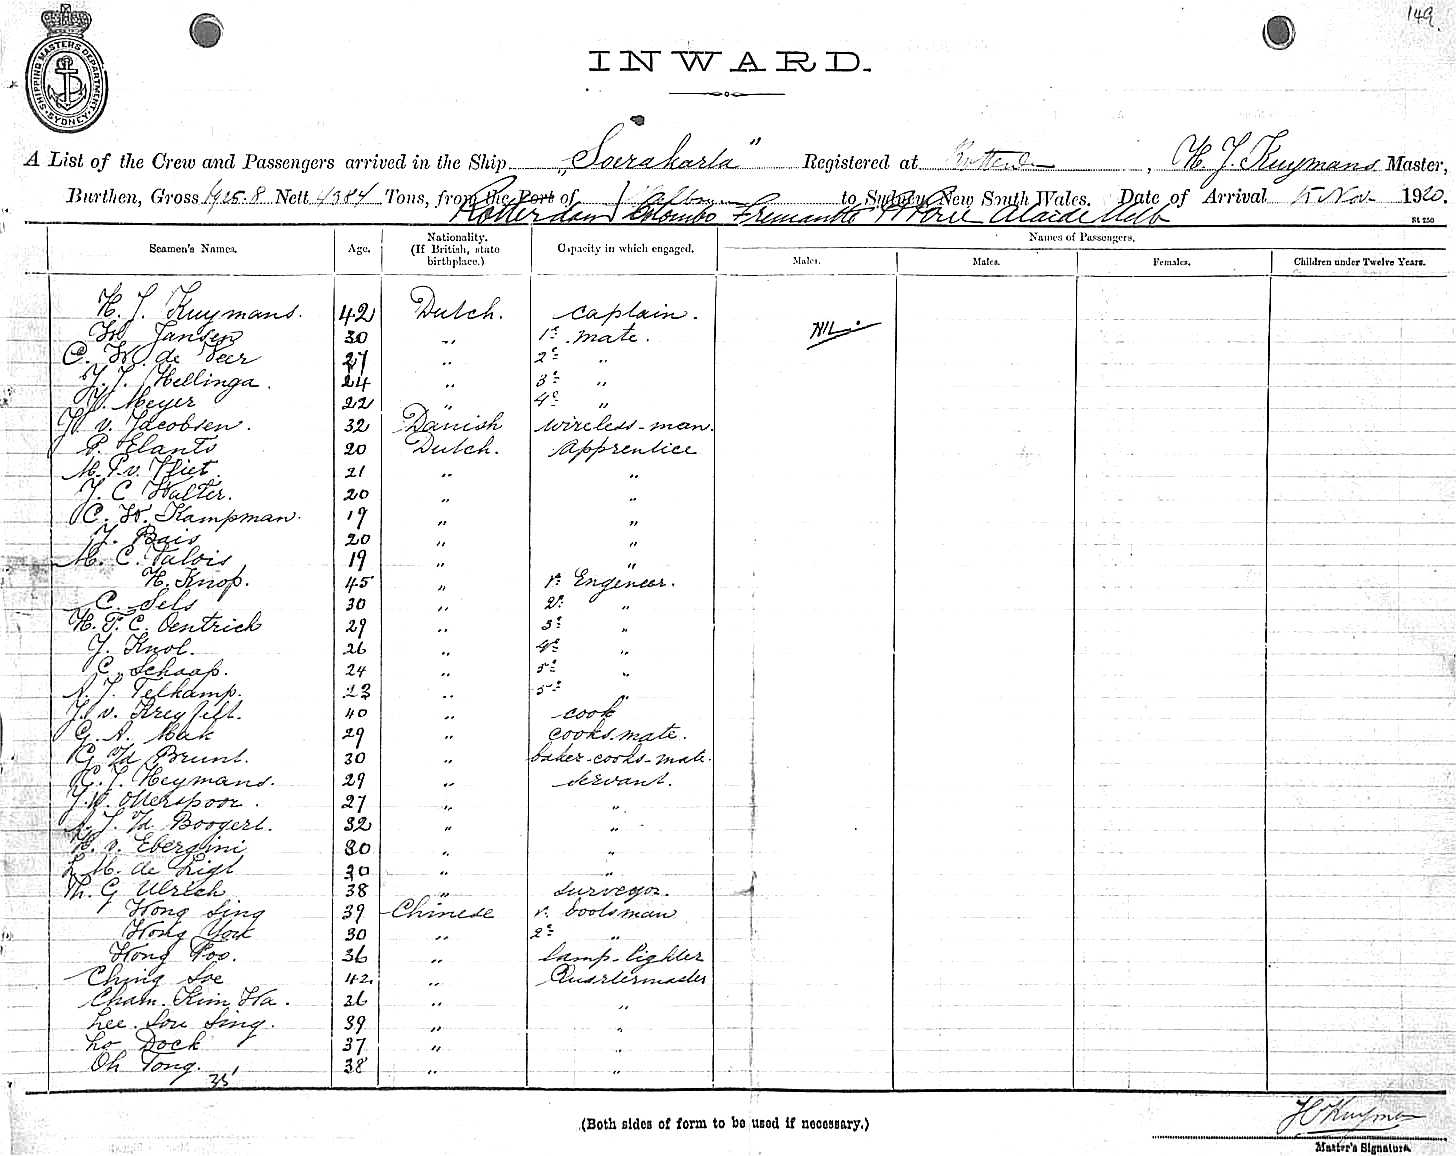 149
INWARD.
SHIPPING MASTERS DEPARTMENT SYDNEY
A List of the Crew and Passengers arrived in the Ship „Soerakarta" Registered at , H. J. Kuymans Master,
Burthen, Gross Nett 4384 Tons, from the Port of Melbourne to Sydney New South Wales. Date of Arrival 15 Nov 1920.
Rotterdam Colombo Fremantle Pt Pirie Alaide Melb
St 250
Seamen's Names. Age. Nationality. (If British, state birthplace.) Capacity in which engaged. Names of Passengers.
Males. Males. Females. Children under Twelve Years.
H. J. Kuymans. 42 Dutch. captain. Nil.
W. Jansen 30 „ 1e mate.
C. W. de Veer 27 „ 2e „
J. J. Hellinga. 24 „ 3e „
W. Meyer 22 „ 4e „
H. v. Jacobsen. 32 Danish wireless-man.
P. Elants 20 Dutch. apprentice
M. P. v. Vliet. 21 „ „
J. C Walter. 20 „ „
C. W. Kampman. 19 „ „
J. Bais 20 „ „
M. C. Valois 19 „ „
H. Knop. 45 „ 1e Engeneer.
C. Sels 30 „ 2e „
H. F. C. Oentrich 29 „ 3e „
J. Knol. 26 „ 4e „
C. Schaap. 24 „ 5e „
A. J. Telkamp. 23 „ 5e „
J. v. 40 „ cook
G. A. Mak 29 „ cooks mate.
G. v/d Brunt. 30 „ baker-cooks-mate.
C. J. Heymans. 29 „ servant.
J. W. Otterspoor. 27 „ „
A. J. v/d Boogert. 32 „ „
H. v. Ebergini 30 „ „
L M. de Ligt 30 „ „
Th. G Ulrich 38 „ surveyor.
Wong Sing 39 Chinese 1e bootsman
Wong York 30 „ 2e „
Wong Foo. 36 „ lamp-lighter
Ching Soe 42 „ Quartermaster
Cham. Kim Wa. 36 „ „
Lee Sou Sing. 39 „ „
Lo Dock 37 „ „
Oh Tong. 38 „ „
35
(Both sides of form to be used if necessary.)
HJKuymans
Master's Signature.